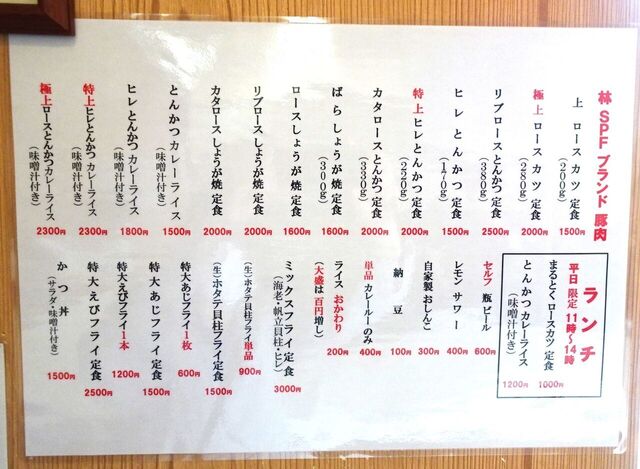 林 SPF ブランド 豚肉
上 ロース カツ 定食
(200g)
1500円
極上 ロース カツ 定食
(280g)
2000円
リブロース とんかつ 定食
(380g)
2500円
ヒレ とんかつ 定食
(170g)
1500円
特上 ヒレ とんかつ 定食
(220g)
2000円
カタロース とんかつ 定食
(330g)
2000円
ばら しょうが 焼 定食
(300g)
1600円
ロース しょうが 焼 定食
1600円
リブロース しょうが 焼 定食
2000円
カタロース しょうが 焼 定食
2000円
とんかつ カレーライス
(味噌汁付き)
1500円
ヒレ とんかつ カレーライス
(味噌汁付き)
1800円
特上 ヒレとんかつ カレーライス
(味噌汁付き)
2300円
極上 ロースとんかつ カレーライス
(味噌汁付き)
2300円
ランチ
平日 限定 11時〜14時
まるとく ロースカツ 定食
1000円
とんかつ カレーライス
(味噌汁付き)
1200円
セルフ 瓶 ビール
600円
レモン サワー
400円
自家製 おしんこ
300円
納 豆
100円
単品 カレールーのみ
400円
ライス おかわり
(大盛は 百円 増し)
200円
ミックスフライ 定食
(海老・帆立貝柱・ヒレ)
3000円
(生) ホタテ 貝柱 フライ 単品
900円
(生) ホタテ 貝柱 フライ 定食
1500円
特大 あじフライ 1枚
600円
特大 あじ フライ 定食
1500円
特大 えびフライ 1本
1200円
特大 えび フライ 定食
2500円
かつ丼
(サラダ・味噌汁付き)
1500円